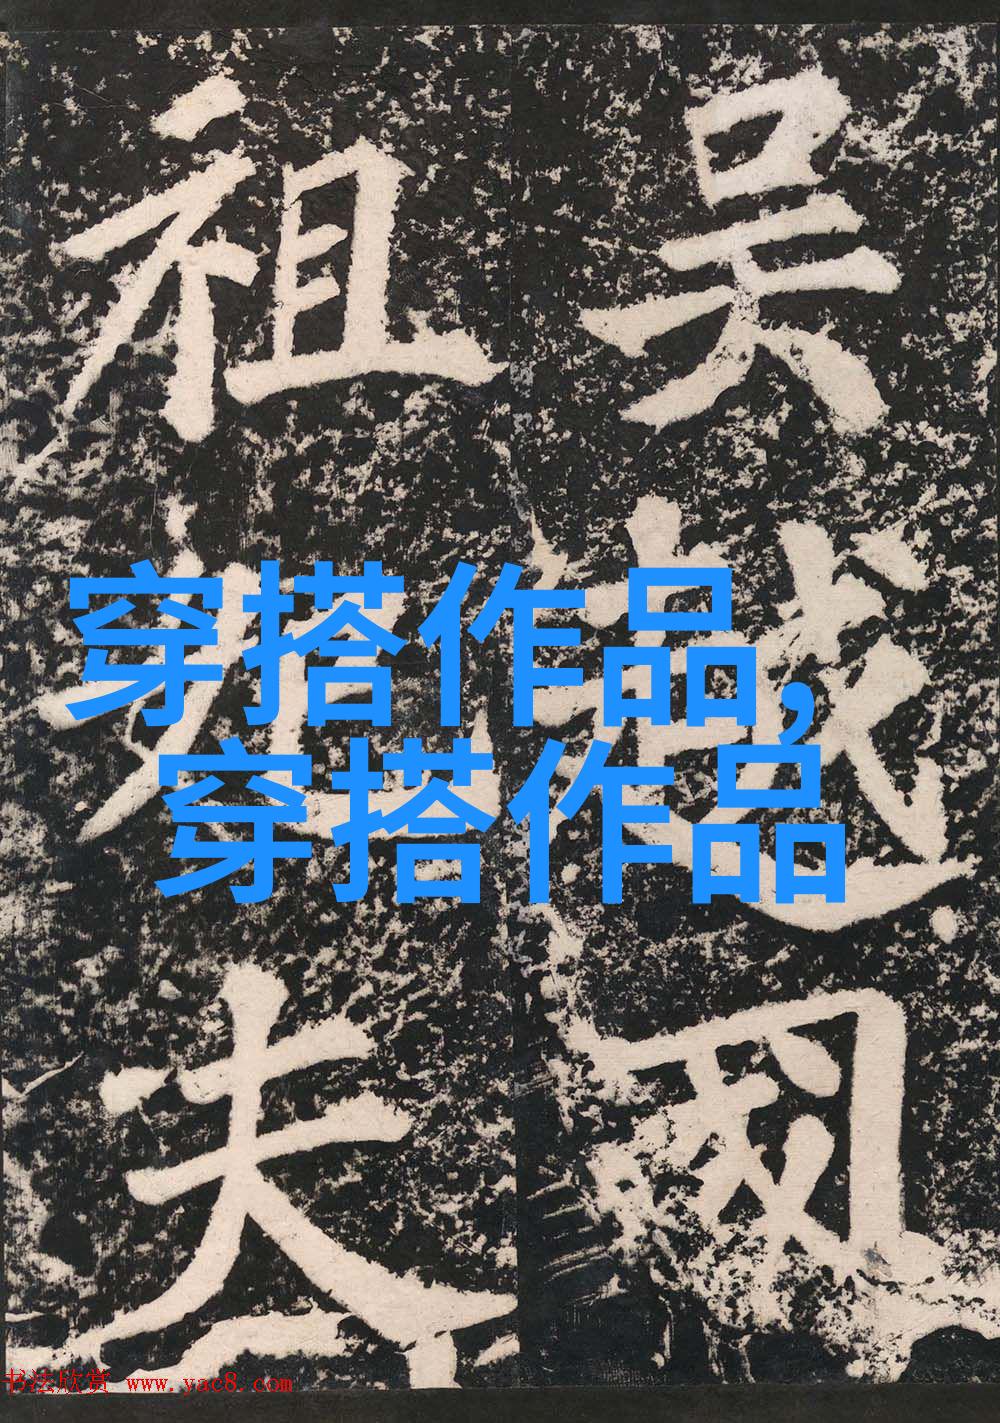 吳越國
祖妃夫
穿搭作品,
穿搭作品
书法欣赏 www.yac8.com